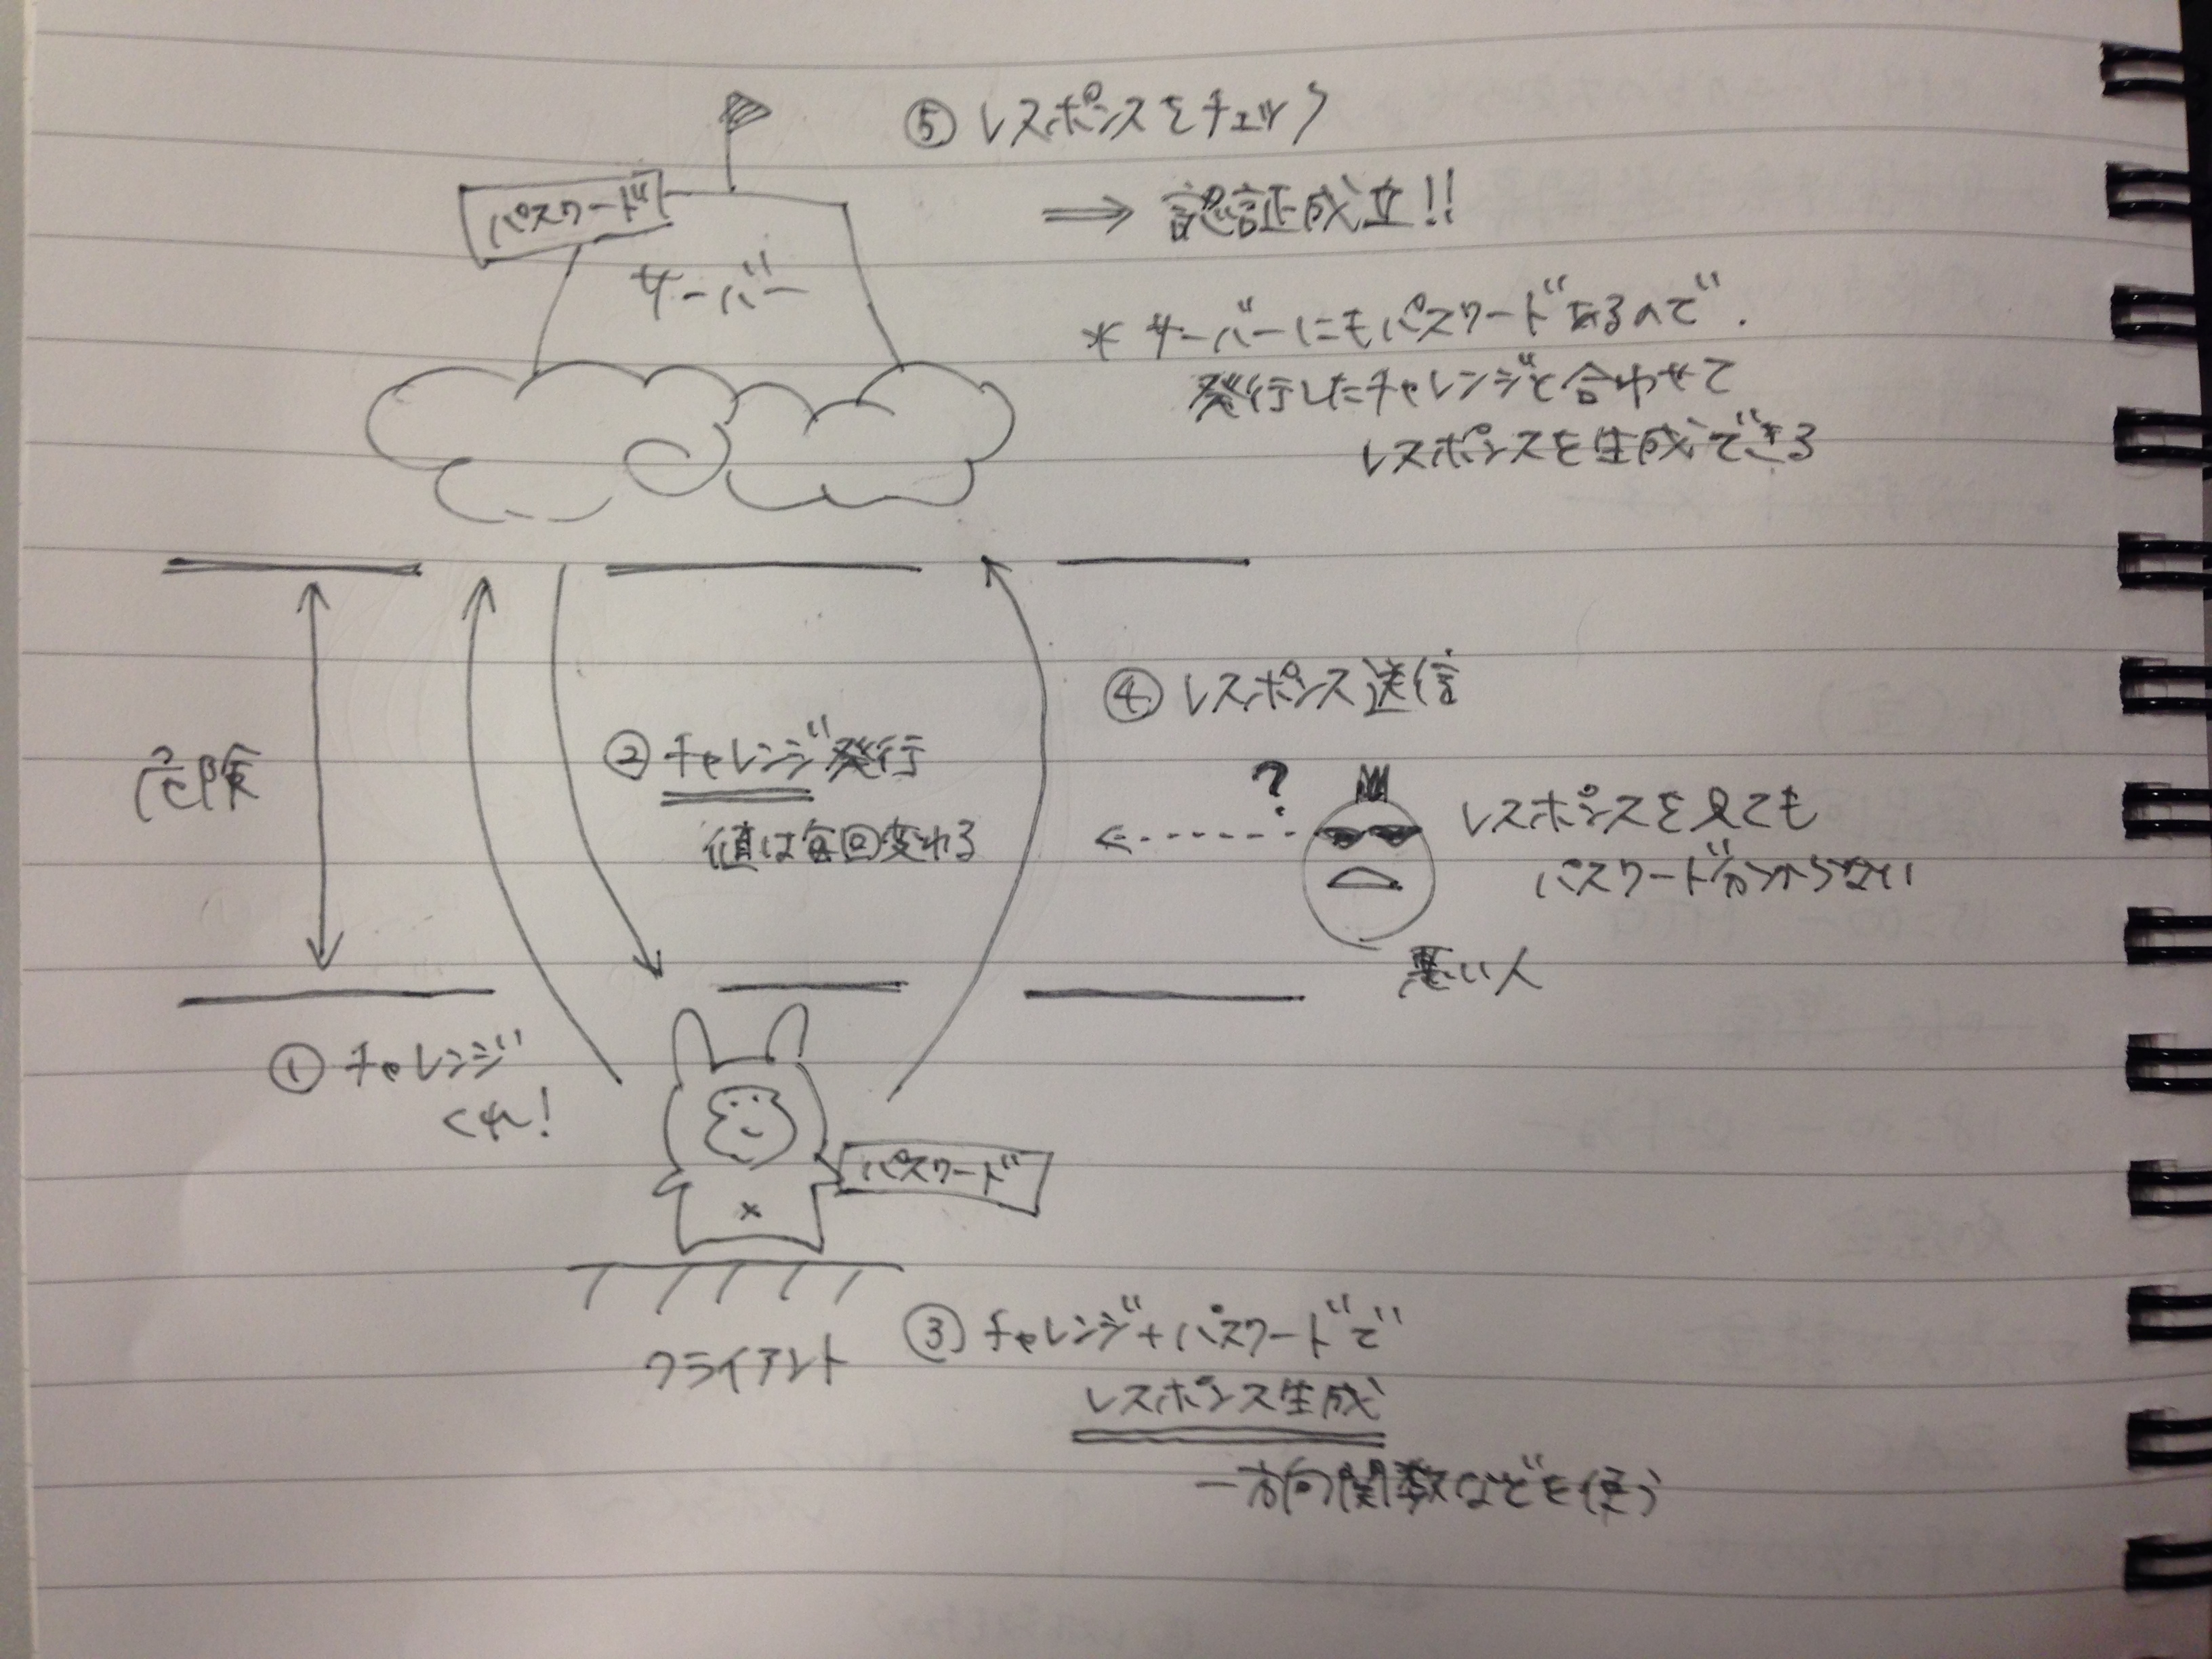 ⑤ レスポンスをチェック
⇒ 認証成立!!
パスワード
サーバー
* サーバーにもパスワードあるので.
発行したチャレンジと合わせて
レスポンスを生成できる
危険
② チャレンジ発行
値は毎回変わる
④ レスポンス送信
?
レスポンスを見ても
パスワード分からない
悪い人
① チャレンジ
くれ!
パスワード
クライアント
③ チャレンジ+パスワードで
レスポンス生成
一方向関数などを使う